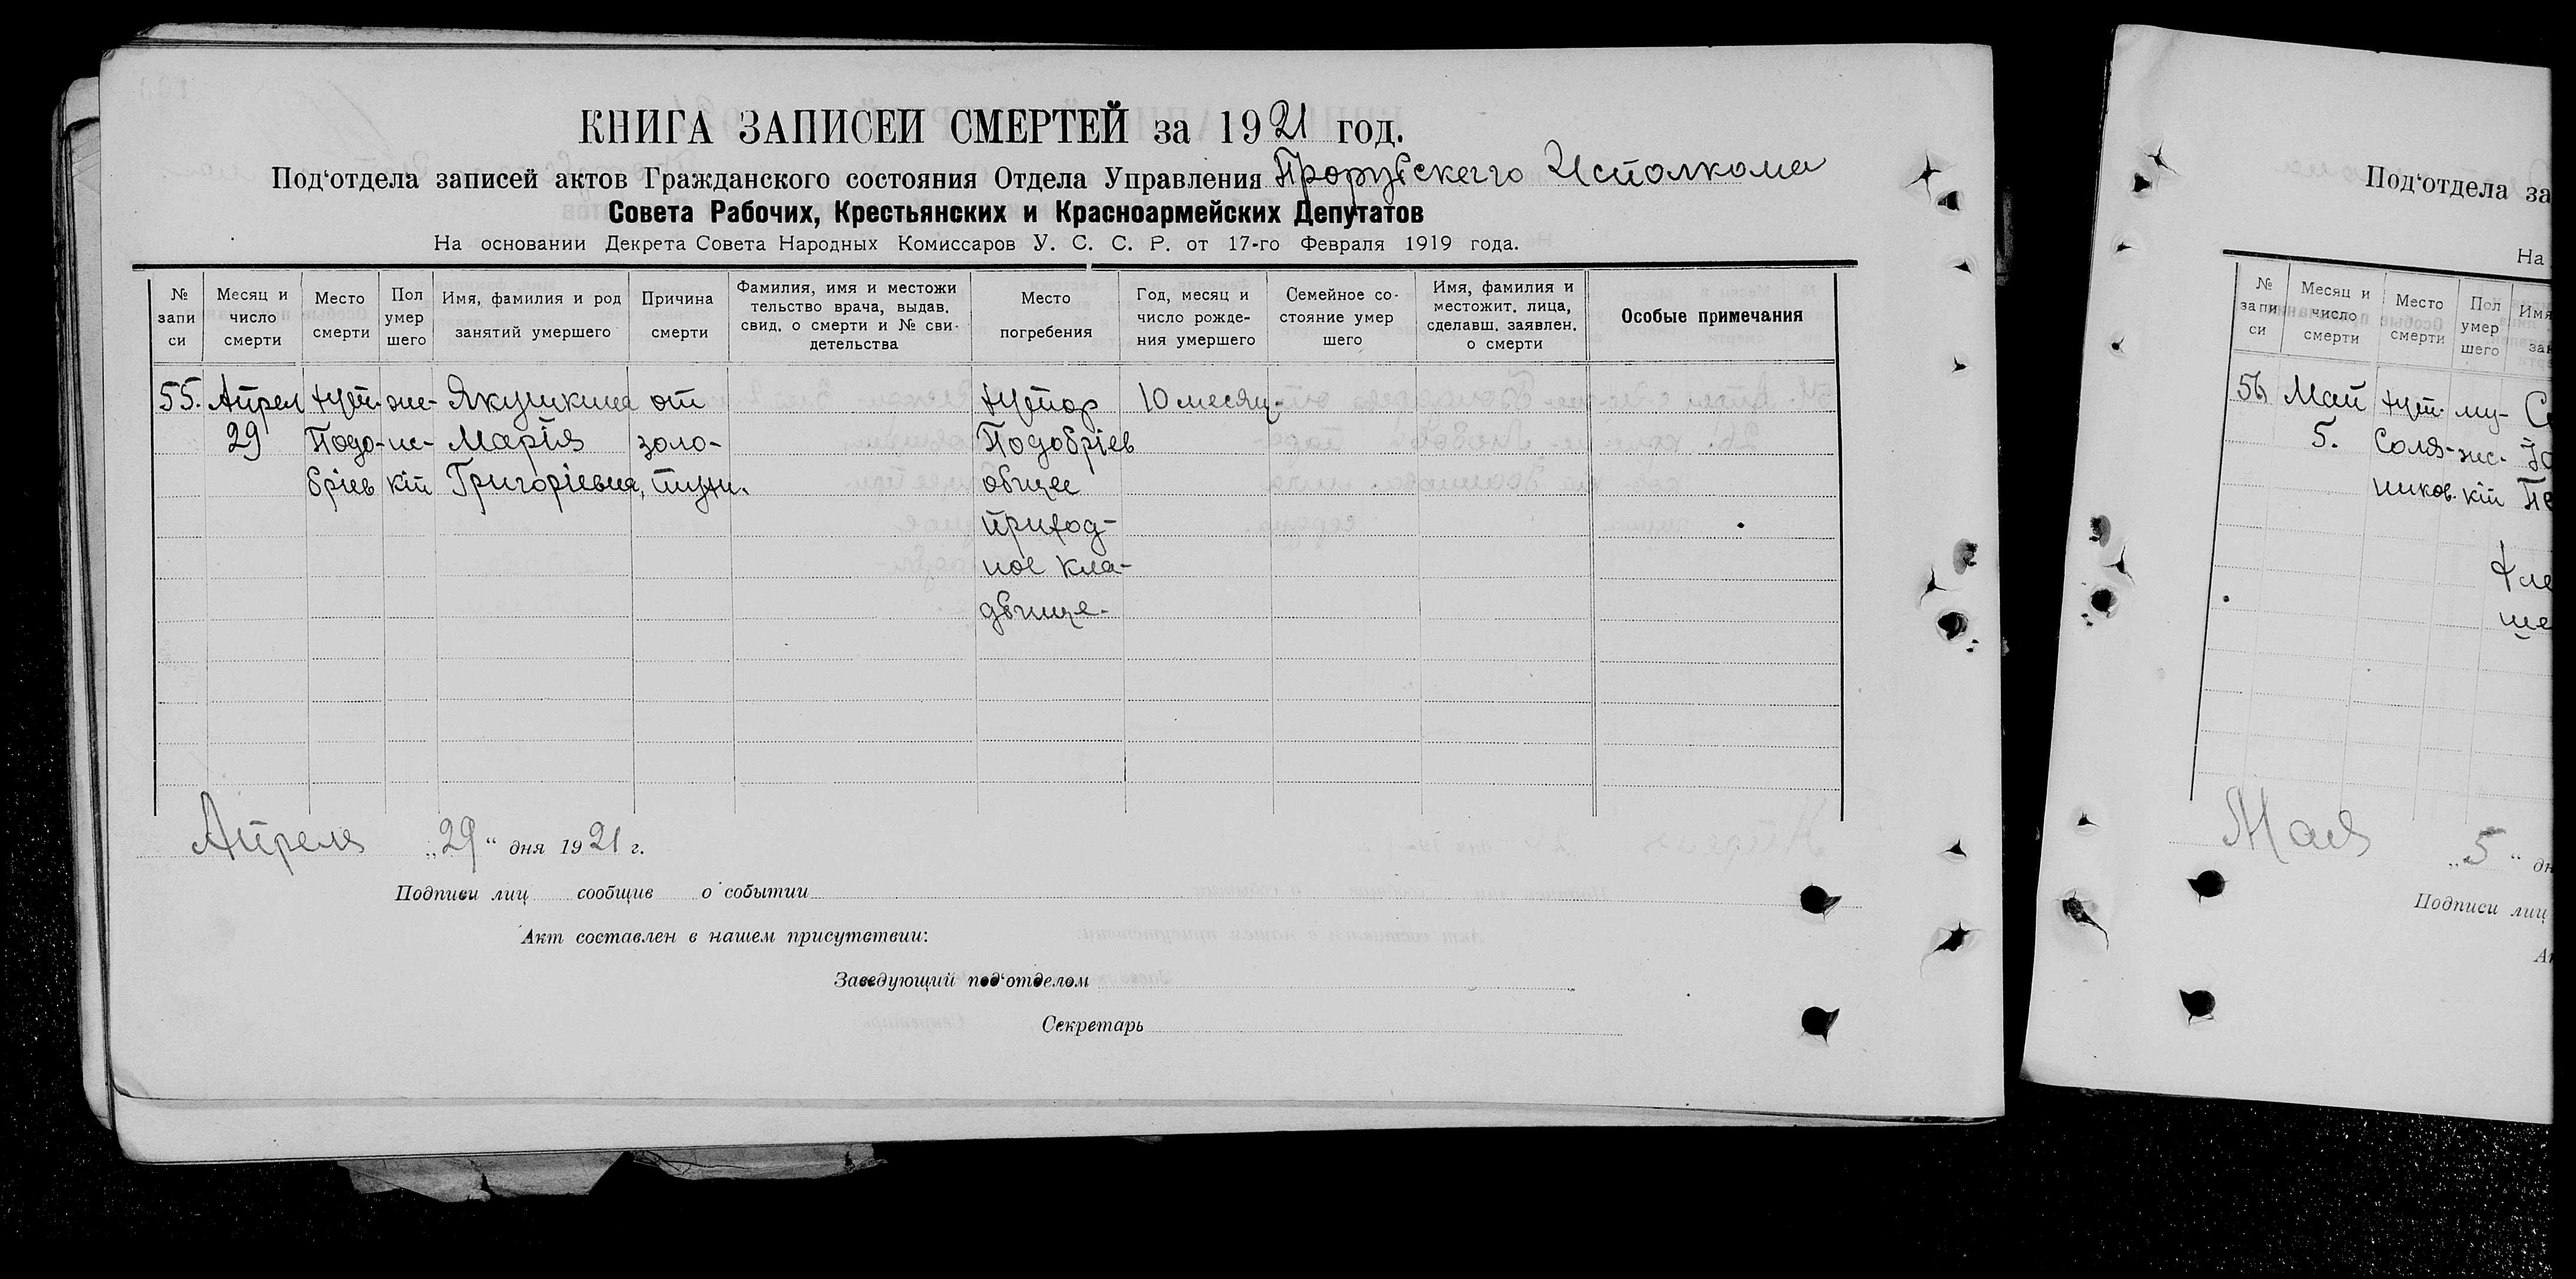 КНИГА ЗАПИСЕЙ СМЕРТЕЙ за 1921 год.
Под‘отдела записей актов Гражданского состояния Отдела Управления Прорубского Исполкома
Совета Рабочих, Крестьянских и Красноармейских Депутатов
На основании Декрета Совета Народных Комиссаров У. С. С. Р. от 17-го Февраля 1919 года.
№ запи си
Месяц и число смерти
Место смерти
Пол умер шего
Имя, фамилия и род занятий умершего
Причина смерти
Фамилия, имя и местожи тельство врача, выдав. свид. о смерти и № сви- детельства
Место погребения
Год, месяц и число рожде- ния умершего
Семейное со- стояние умер шего
Имя, фамилия и местожит. лица, сделавш. заявлен. о смерти
Особые примечания
55. Апрел хут. же- Якушкина от хутор 10 месяц.
29 Подо- нс- Марія золо- Подобріев
бріев кій Григоріевна, тухи. общее
приход-
ное кла-
дбище.
Апреля „29“ дня 1921 г.
Подписи лиц сообщив о событии
Акт составлен в нашем присутствии:
Заведующий под‘отделом
Секретарь
Под‘отдела за
На
№ запи си
Месяц и число смерти
Место смерти
Пол умер шего
Имя
зан
56 Май хут. му-
5. Соля- жс-
ников. кій
Мая „5“ дн
Подписи лиц